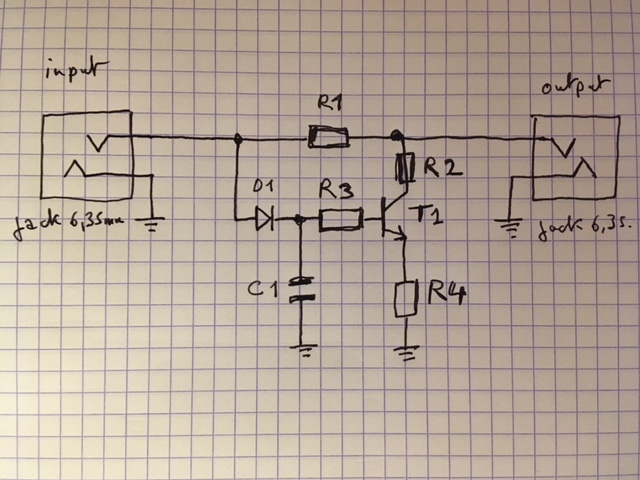 input
output
R1
R2
D1
R3
T1
jack 6,35mm
jack 6,35.
C1
R4